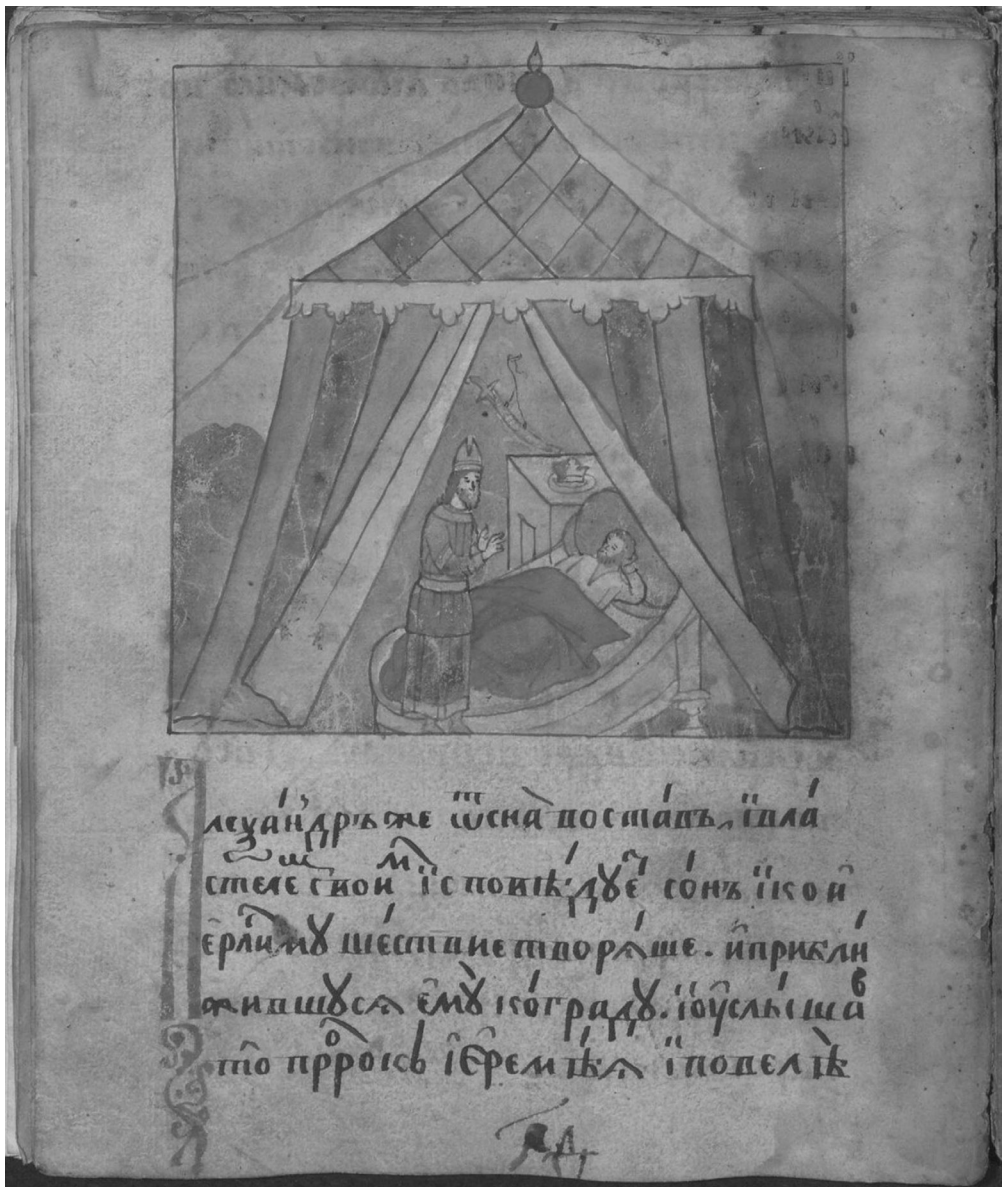 леѯа́ндръ же ѿ сна̀ воста́въ, ї вла́
стеле свои̑ м ї споыѣ́дꙋе со́нъ ї ко и
е̑рл҃и́мꙋ ше́ствие творя́ше. и̑ прибли́
жившꙋся е̑мꙋ̀ ко́ градꙋ. ї оу̑слы́шав
то̑ пр҇ро́къ і̑ере́мѣѧ ї повелѣ̀